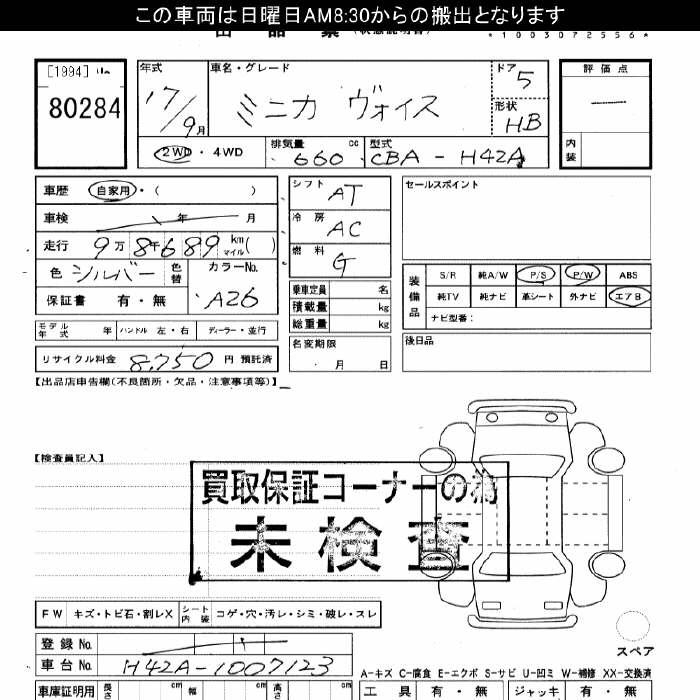 この車両は日曜日AM8:30からの搬出となります
*1003072556*
[1994]
80284
年式 17/9月
車名・グレード ミニカ ヴォイス
ドア 5
形状 HB
評価点 ―
内装
2WD ・ 4WD
排気量 660 cc
型式 CBA - H42A
車歴 自家用・( )
車検 年 月
走行 9万8千689 km マイル( )
色 シルバー 色替
カラーNo. A26
保証書 有・無
シフト AT
冷房 AC
燃料 G
乗車定員 名
積載量 kg
総重量 kg
名変期限 ・月 日
セールスポイント
装備品
S/R 純A/W P/S P/W ABS
純TV 純ナビ 革シート 外ナビ エアB
ナビ型番:
後日品
モデル年式 年 ハンドル 左・右 ディーラー・並行
リサイクル料金 8,750 円 預託済
【出品店申告欄(不良箇所・欠品・注意事項等)】
【検査員記入】
買取保証コーナーの為
未検査
FW キズ・トビ石・割レX シート内装 コゲ・穴・汚レ・シミ・破レ・スレ
スペア
登録No.
車台No. H42A-1007123
A-キズ C-腐食 E-エクボ S-サビ U-凹ミ W-補修 XX-交換済
車庫証明用 長さ cm 幅 cm 高さ cm
工具 有・無 ジャッキ 有・無